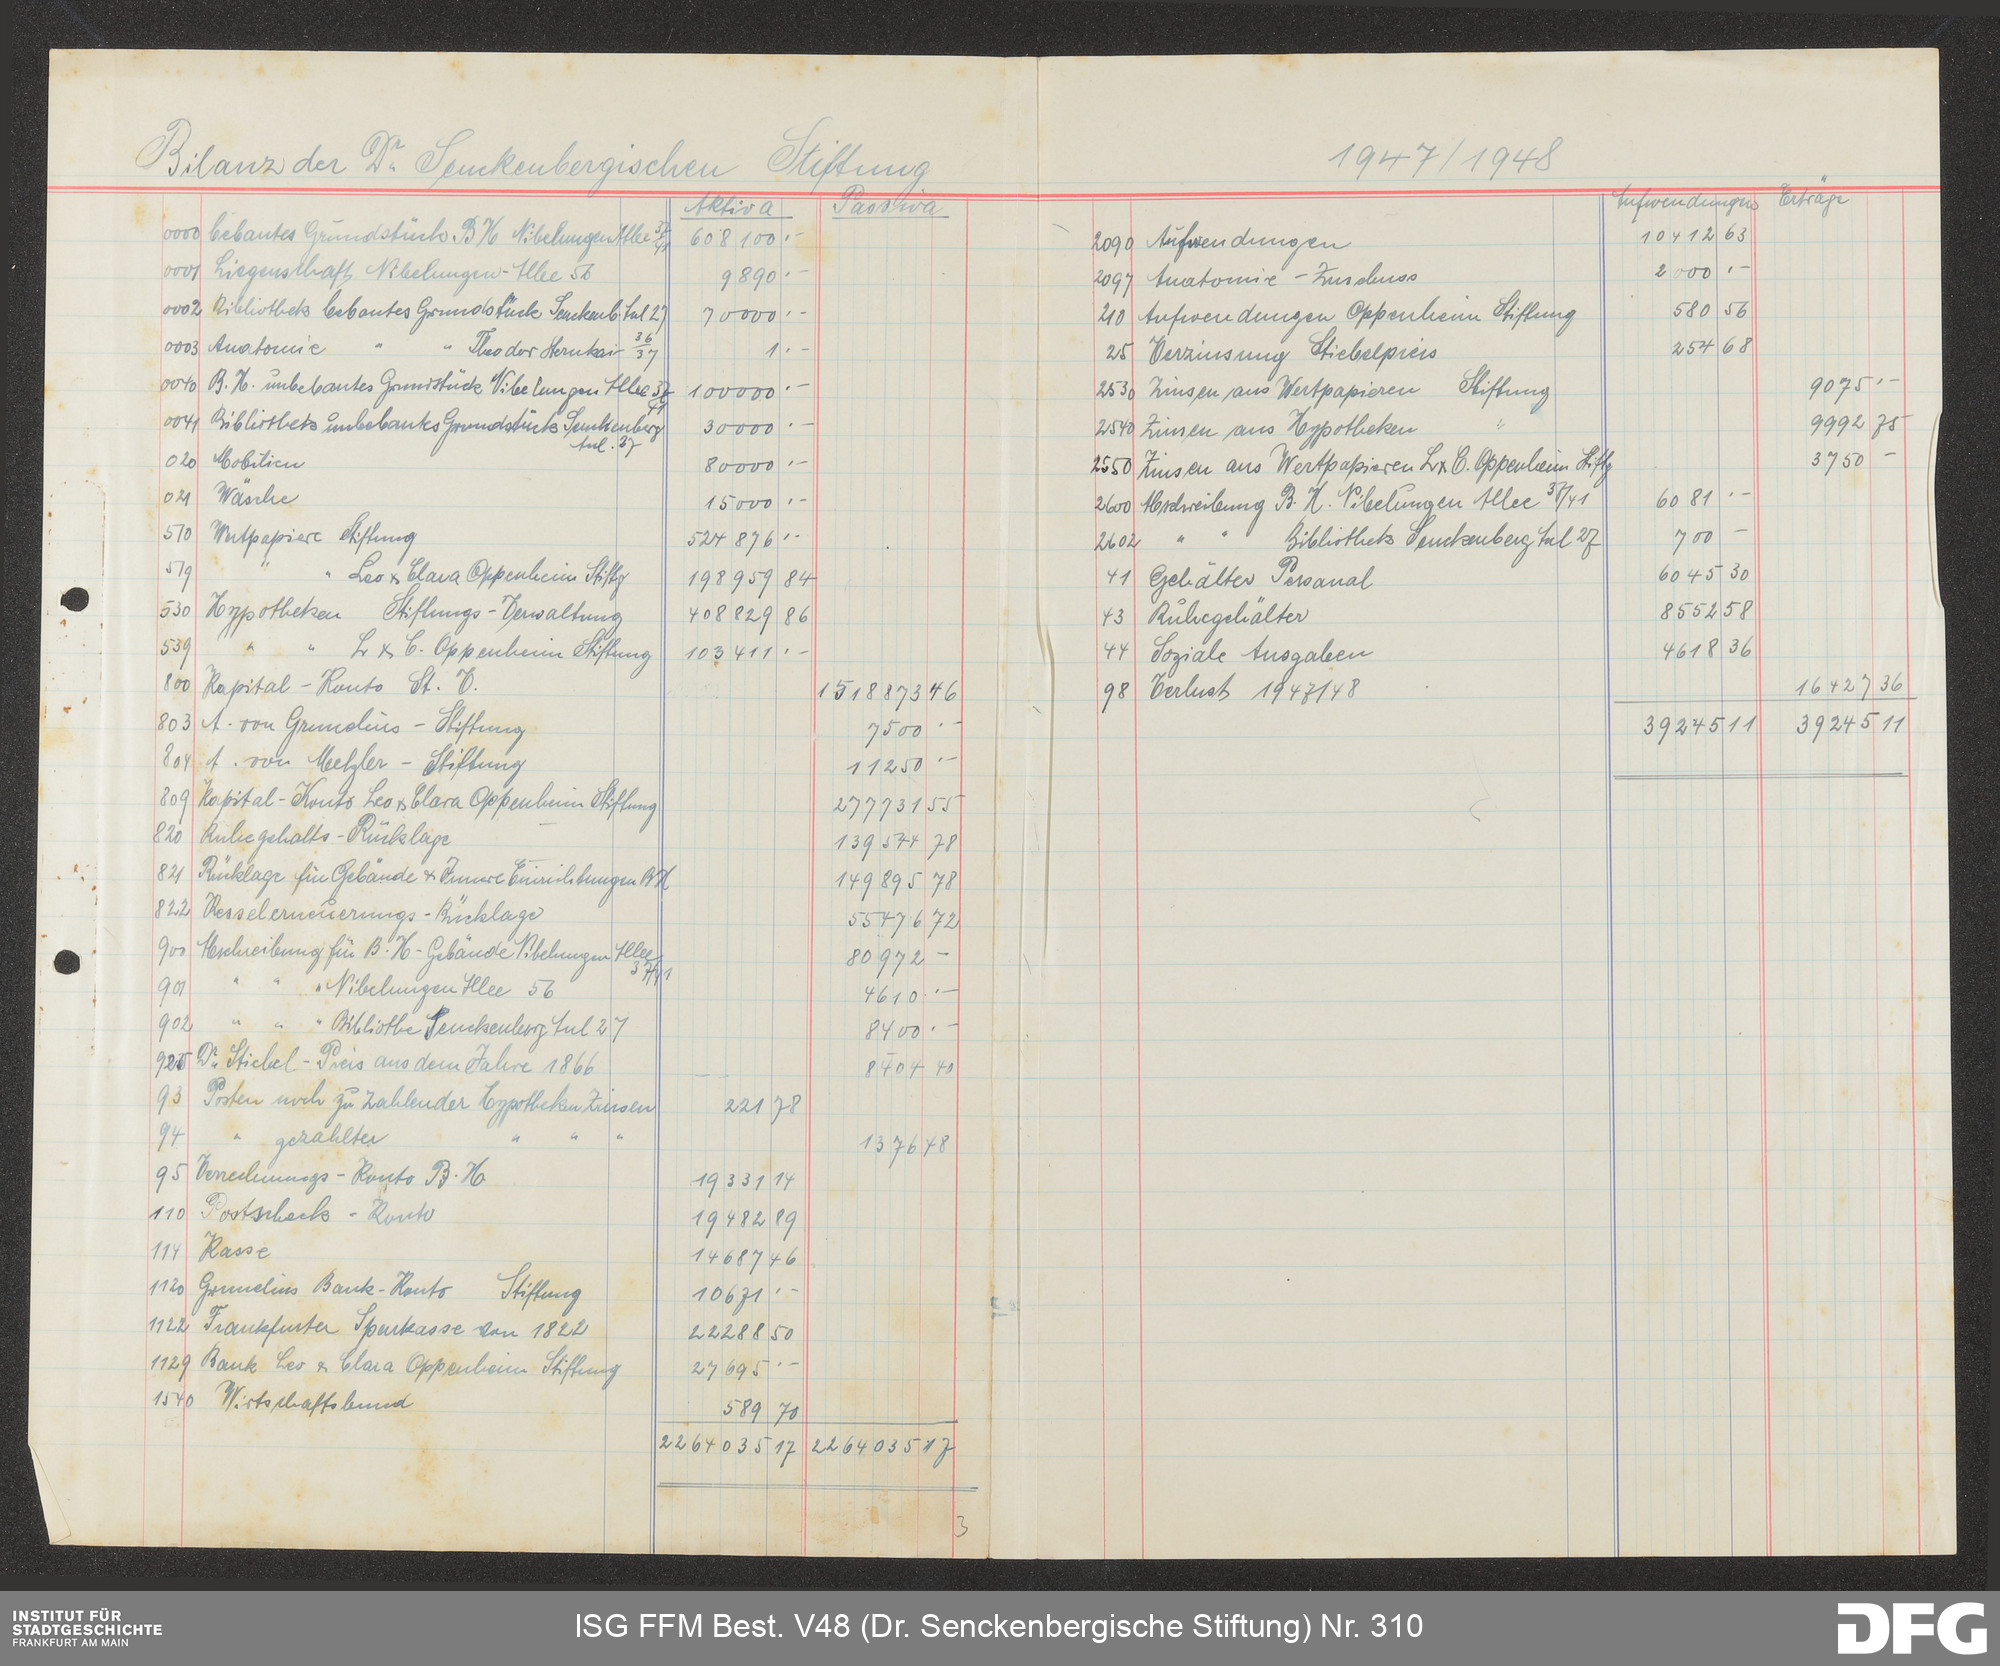 Bilanz der Dr. Senckenbergischen Stiftung
Aktiva Passiva
0000 bebautes Grundstück B H Nibelungen Allee 37/41 608 100 .-
0001 Liegenschaft Nibelungen-Allee 56 9890 .-
0002 Bibliothek bebautes Grundstück Senckenb. Anl 27 70000 .-
0003 Anatomie " " Theodor Sternkai 36/37 1 .-
0040 B.H. unbebautes Grundstück Nibelungen Allee 37/41 100000 .-
0041 Bibliothek unbebautes Grundstück Senckenberg Anl. 27 30000 .-
020 Mobilien 80000 .-
021 Wäsche 15000 .-
510 Wertpapiere Stiftung 524 876 .-
519 " " Leo & Clara Oppenheim Stiftg 198 959 84
530 Hypotheken Stiftungs-Verwaltung 408 829 86
539 " " L & C. Oppenheim Stiftung 103 411 .-
800 Kapital-Konto St. V. 1518873 46
803 A. von Grunelius - Stiftung 7500 .-
804 A. von Metzler - Stiftung 11250 .-
809 Kapital-Konto Leo & Clara Oppenheim Stiftung 277731 55
820 Ruhegehalts-Rücklage 139544 78
821 Rücklage für Gebände & Innere Einrichtungen B H 149895 78
822 Kesselerneuerungs-Rücklage 55476 72
900 Abschreibung für B.H-Gebände Nibelungen Allee 37/41 80972 -
901 " " " Nibelungen Allee 56 4610 .-
902 " " " Bibliothe Senckenberg Anl 27 8400 .-
925 Dr. Stiebel-Preis aus dem Jahre 1866 8404 40
93 Posten noch zu zahlender Hypotheken Zinsen 221 78
94 " gezahlter " " " 1376 48
95 Verrechnungs-Konto B.H 19331 14
110 Postscheck-Konto 19482 89
114 Kasse 14687 46
1120 Grunelius Bank-Konto Stiftung 10671 .-
1122 Frankfurter Sparkasse von 1822 22288 50
1129 Bank Leo & Clara Oppenheim Stiftung 27695 .-
1540 Wirtschaftsbund 589 70
2264035 17 2264035 17
3
1947/1948
Aufwendungen Erträge
2090 Aufwendungen 10412 63
2097 Anatomie-Zuschuss 2000 .-
210 Aufwendungen Oppenheim Stiftung 580 56
25 Verzinsung Stiebelpreis 254 68
2530 Zinsen aus Wertpapieren Stiftung 9075 .-
2540 Zinsen aus Hypotheken " 9992 75
2550 Zinsen aus Wertpapieren L & C. Oppenheim Stiftg 3750 -
2600 Abschreibung B.H. Nibelungen Allee 37/41 6081 .-
2602 " " Bibliothek Senckenberg Anl 27 700 -
41 Gehälter Personal 6045 30
43 Ruhegehälter 8552 58
44 Soziale Ausgaben 4618 36
98 Verlust 1947/48 16427 36
39245 11 39245 11
INSTITUT FÜR
STADTGESCHICHTE
FRANKFURT AM MAIN
ISG FFM Best. V48 (Dr. Senckenbergische Stiftung) Nr. 310
DFG